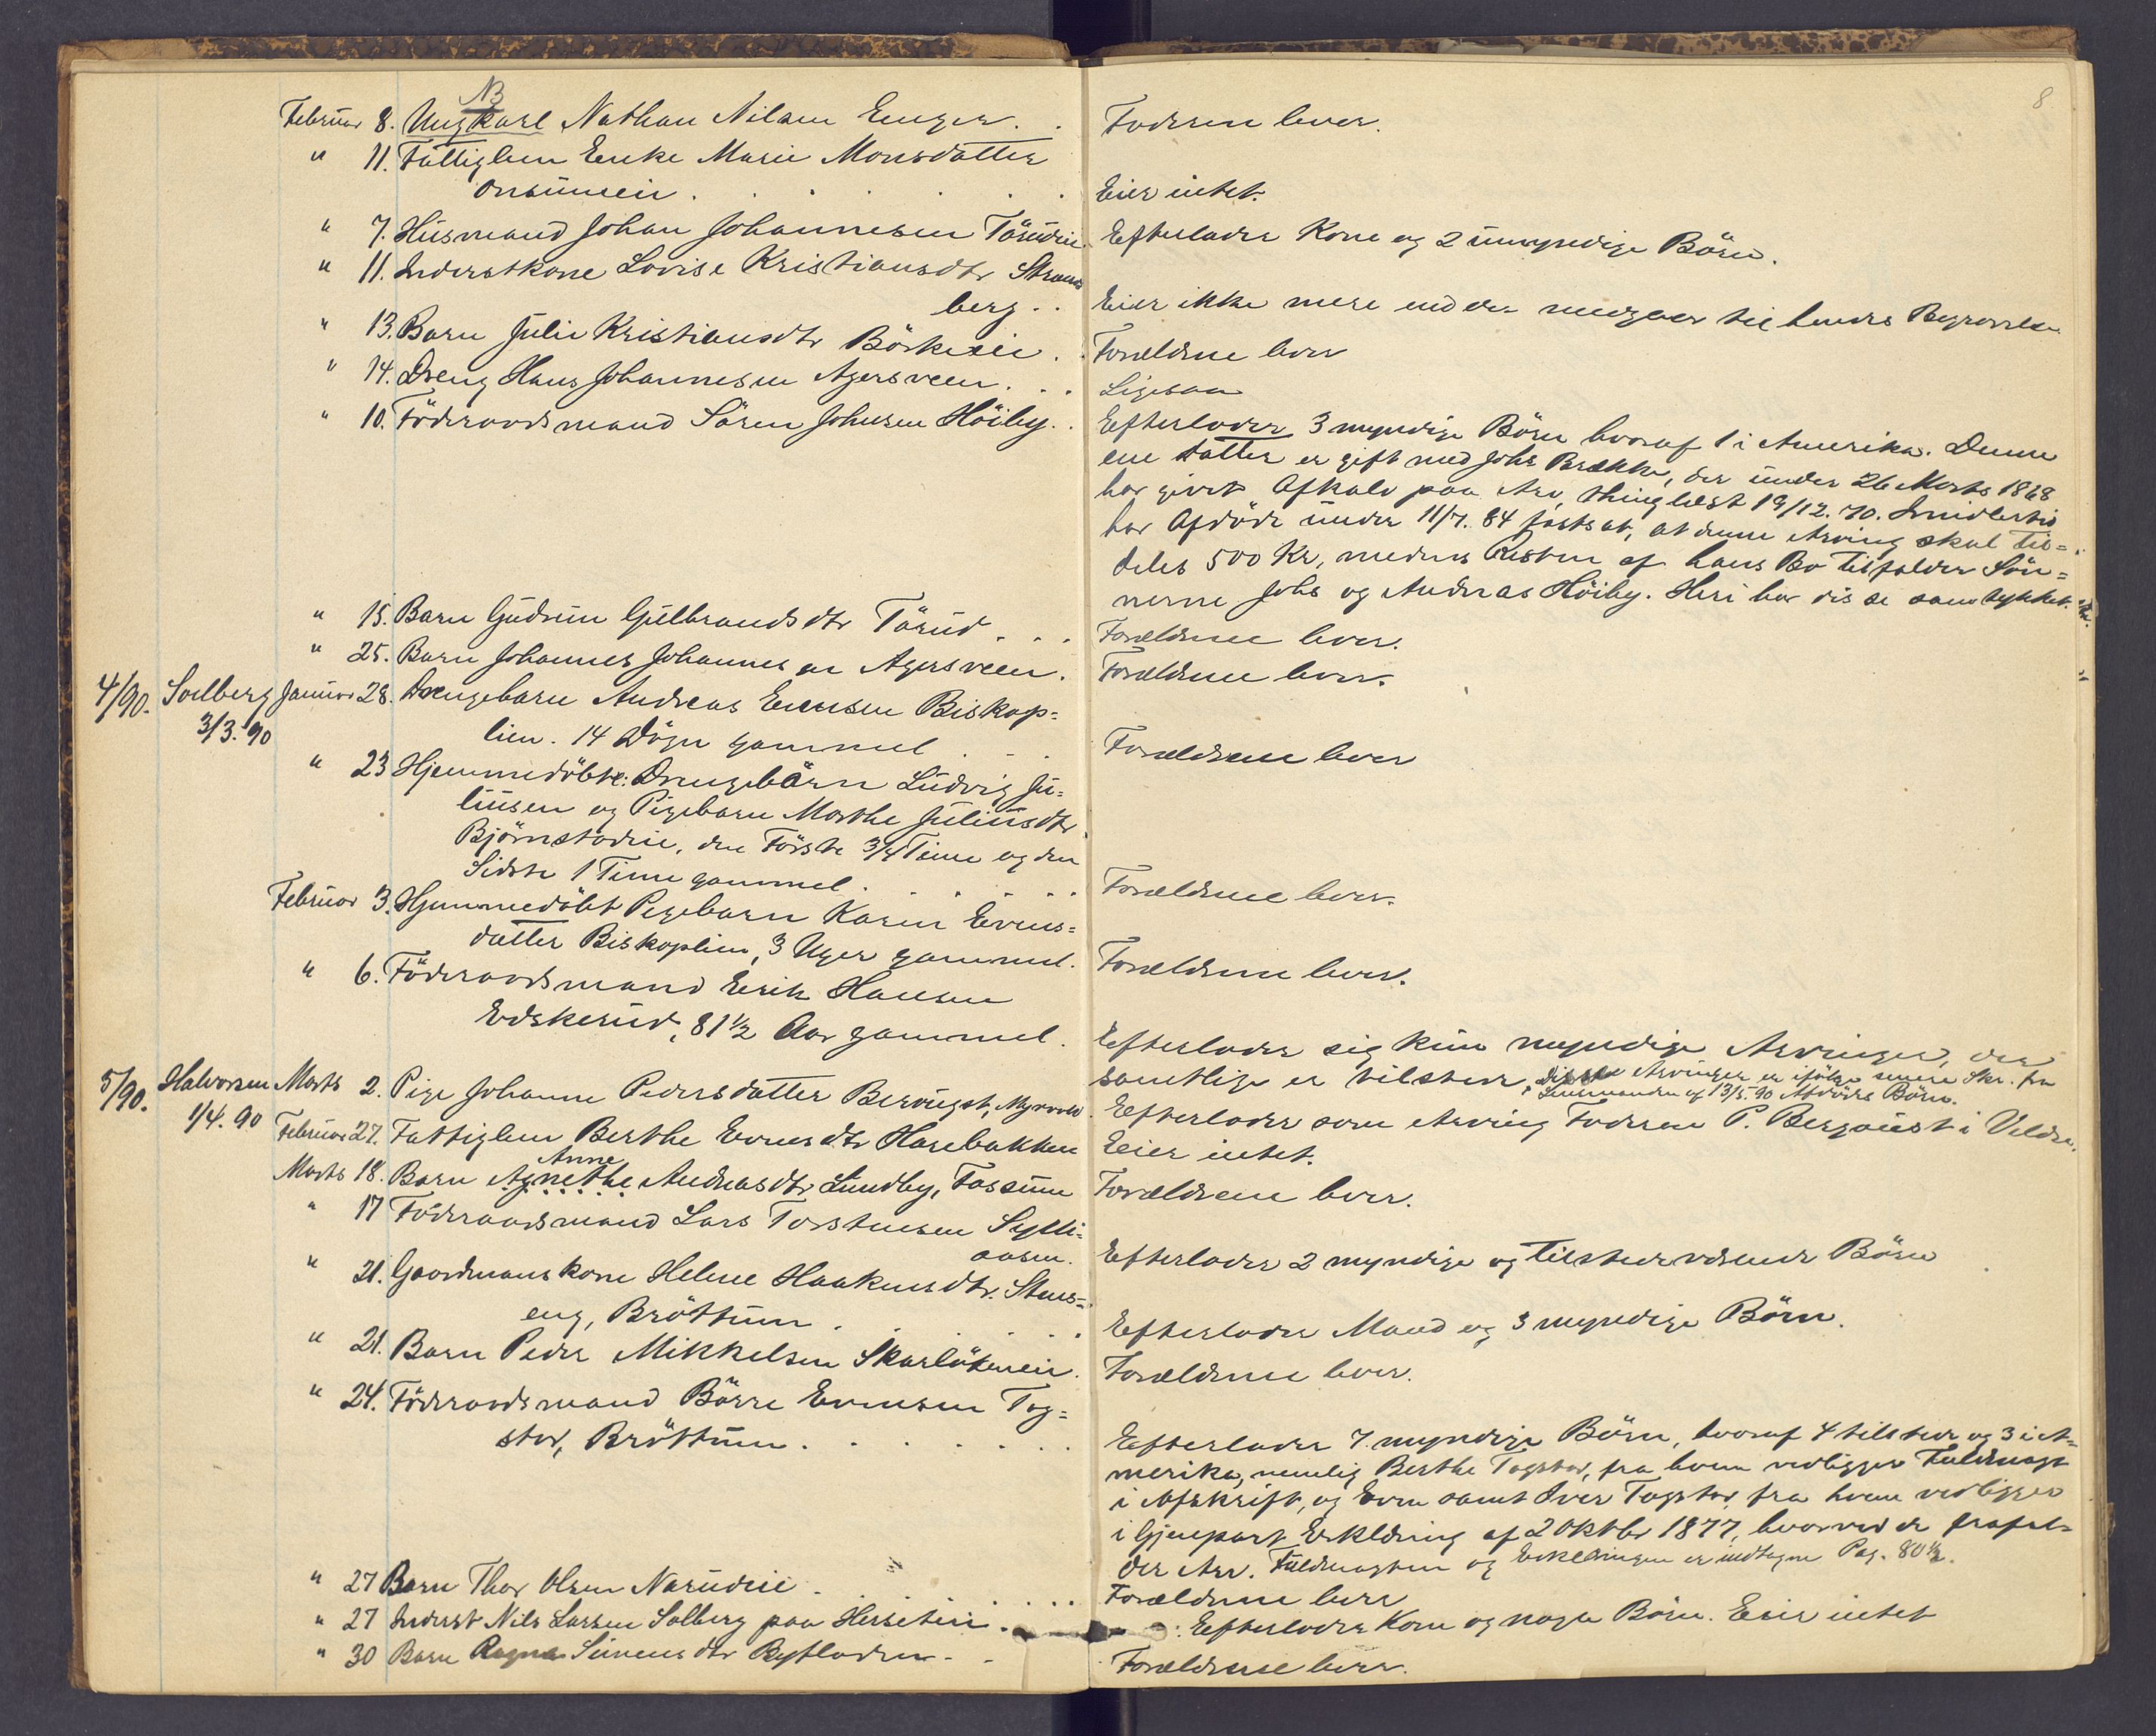 8
NB
Februar 8. Ungkarl Nathan Nilsen Enger . . Faderen lever.
" 11. Fattiglem Enke Marie Monsdatter
Onsumeie . . . . . Eier intet.
" 7. Husmand Johan Johannesen Törüdeie. Efterlader Kone og 2 umyndige Börn.
" 11. Inderstkone Lovise Kristiansdtr Strand
berg . . Eier ikke mere end der medgaar til hendes Begravelse
" 13. Barn Julie Kristiansdtr Börkeeie . . Forældrene lever
" 14. Dreng Hans Johannesen Agersveen . . . Ligesaa
" 10. Föderaadsmand Sören Johnsen Höiby . . Efterlader 3 myndige Börn hvoraf 1 i Amerika. Denne
ene Datter er gift med Johs Brække, der under 26 Marts 1868
har givet Afkald paa Arv, thinglæst 19/12. 70. Imidlertid
har Afdöde under 11/7. 84 fastsat, at denne Arving skal til=
deles 500 Kr, medens Resten af hans Bo tilfalder Sön=
nerne Johs og Andreas Höiby. Heri har disse samtykket.
" 15. Barn Gudrun Gulbrandsdtr Törud . . . Forældrene lever.
" 25. Barn Johannes Johannesen Agersveen . Forældrene lever.
4/90. Soelberg Januar 28. Drengebarn Andreas Evensen Biskop=
3/3. 90 lien. 14 Dögn gammel . . . Forældrene lever
" 23 Hjemmedöbte: Drengebarn Ludvig Ju=
liusen og Pigebarn Marthe Juliusdtr
Björnstadeie, den Förste 3/4 Time og den
Sidste 1 Time gammel . . . . . . Forældrene lever.
Februar 3. Hjemmedöbt Pigebarn Karen Evens=
datter Biskoplien, 3 Uger gammel. Forældrene lever.
" 6. Föderaadsmand Erik Hansen
Evskerud, 81 1/2 Aar gammel. Efterlader sig kun myndige Arvinger, der
samtlige er tilstede, disse Arvinger er ifölge senere Skr. fra
Lensmanden af 13/5. 90 Afdödes Börn.
5/90. Halvorsen Marts 2. Pige Johanne Pedersdatter Berquist, Myrvold Efterlader som Arving Faderen P. Bergquist i Veldre.
1/4. 90 Februar 27. Fattiglem Berthe Evensdtr Harebakken Eier intet.
Anne
Marts 18. Barn Agnethe Andreasdtr Lundby, Fossum Forældrene lever.
" 17 Föderaadsmand Lars Torstensen Sylli=
aasen. Efterlader 2 myndige og tilstedeværende Börn
" 21. Gaardmandskone Helene Haakensdtr. Stens=
eng, Bröttum . . . . . . Efterlader Mand og 3 myndige Börn.
" 21. Barn Peder Mikkelsen Skarlökeneie . Forældrene lever.
" 24. Föderaadsmand Börre Evensen Tog=
stad, Bröttum . . . . . . . Efterlader 7 myndige Börn, hvoraf 4 tilstede og 3 i A=
merika, nemlig Berthe Togstad, fra hvem vedligger Fuldmagt
i Afskrift, og Even samt Iver Togstad, fra hvem vedligger
i Gjenpart Erklæring af 2 Oktbr 1877, hvorved de frafal=
der Arv. Fuldmagten og Erklæringen er indtagne Pag. 80 1/2.
" 27 Barn Thor Olsen Narudeie . . . . . Forældrene lever
" 27 Inderst Nils Larsen Solberg paa Herseteie . . Efterlader Kone og nogle Börn. Eier intet
" 30 Barn Ragna Simensdtr Bytladen . . Forældrene lever.